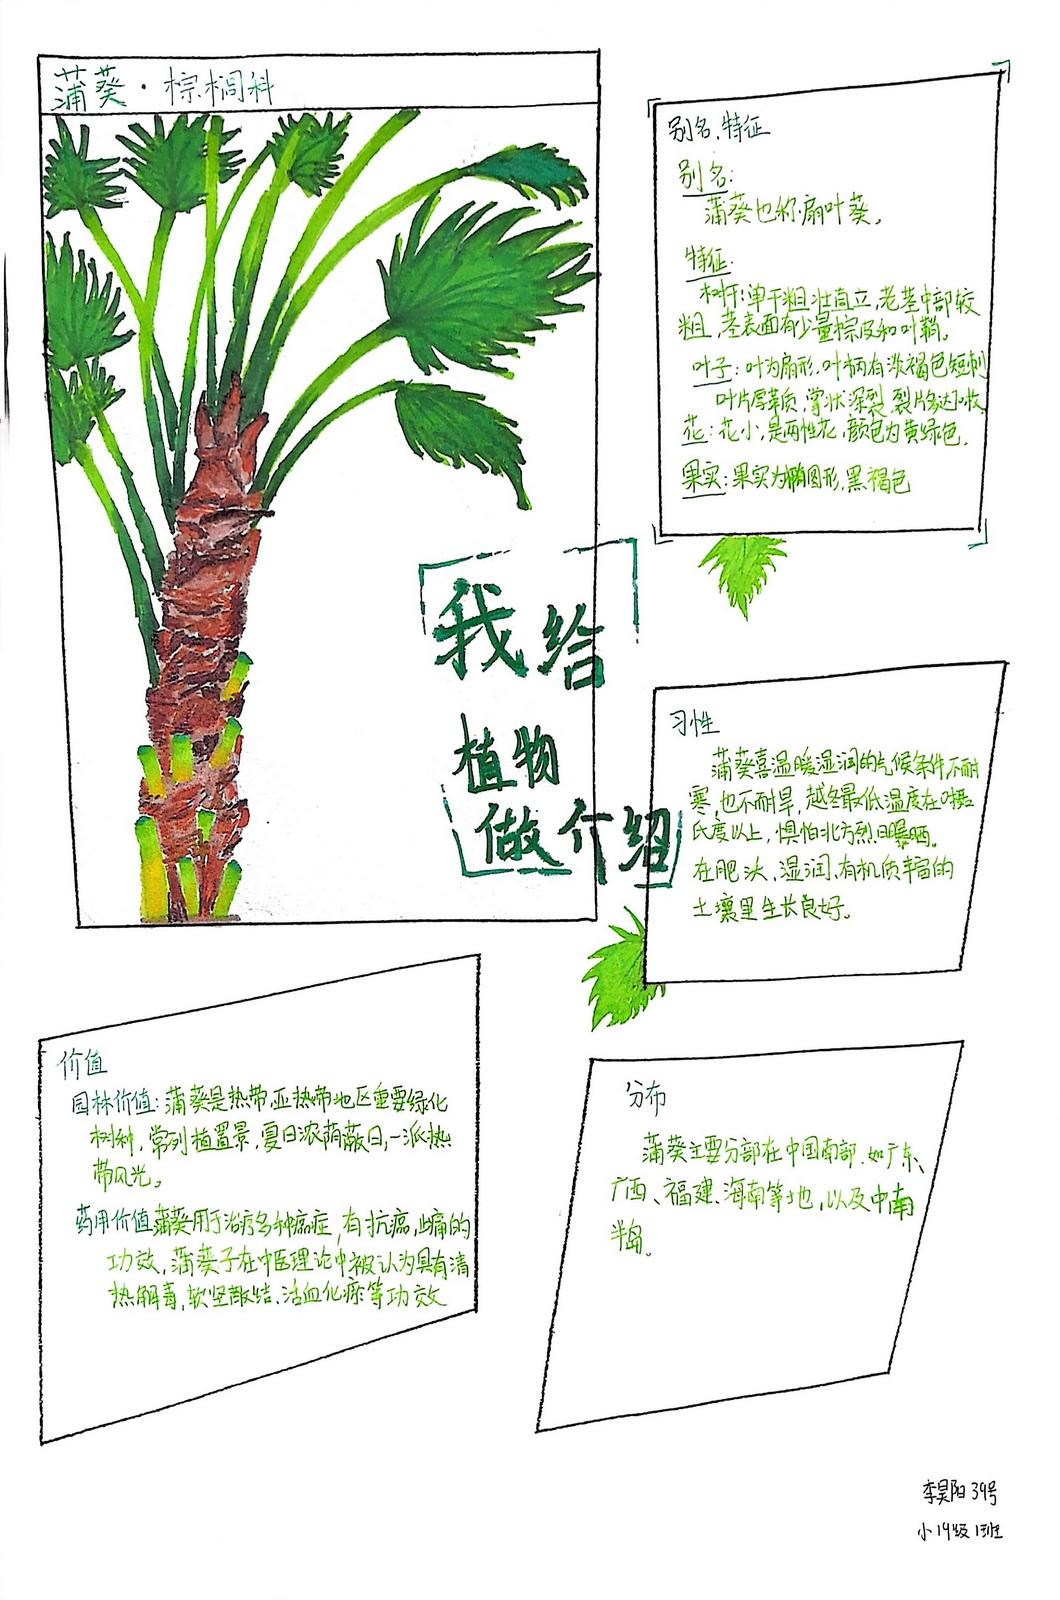 蒲葵·棕榈科
别名、特征
别名:
蒲葵也称扇叶葵。
特征:
树干:单干粗壮直立,老茎中部较
粗,茎表面有少量棕皮和叶鞘。
叶子:叶为扇形.叶柄有淡褐色短刺
叶片厚革质,掌状深裂,裂片多达小收
花:花小,是两性花,颜色为黄绿色。
果实:果实为椭圆形,黑褐色
我给
植物
做介绍
习性
蒲葵喜温暖湿润的气候条件,不耐
寒,也不耐旱,越冬最低温度在0摄
氏度以上,惧怕北方烈日曝晒。
在肥沃、湿润、有机质丰富的
土壤里生长良好。
价值
园林价值:蒲葵是热带、亚热带地区重要绿化
树种,常列植置景,夏日浓荫蔽日,一派热
带风光。
药用价值 蒲葵用于治疗多种癌症,有抗癌,止痛的
功效,蒲葵子在中医理论中被认为具有清
热解毒,软坚散结、活血化瘀等功效
分布
蒲葵主要分部在中国南部.如广东、
广西、福建、海南等地,以及中南
半岛。
李昊阳 39号
小19级1班